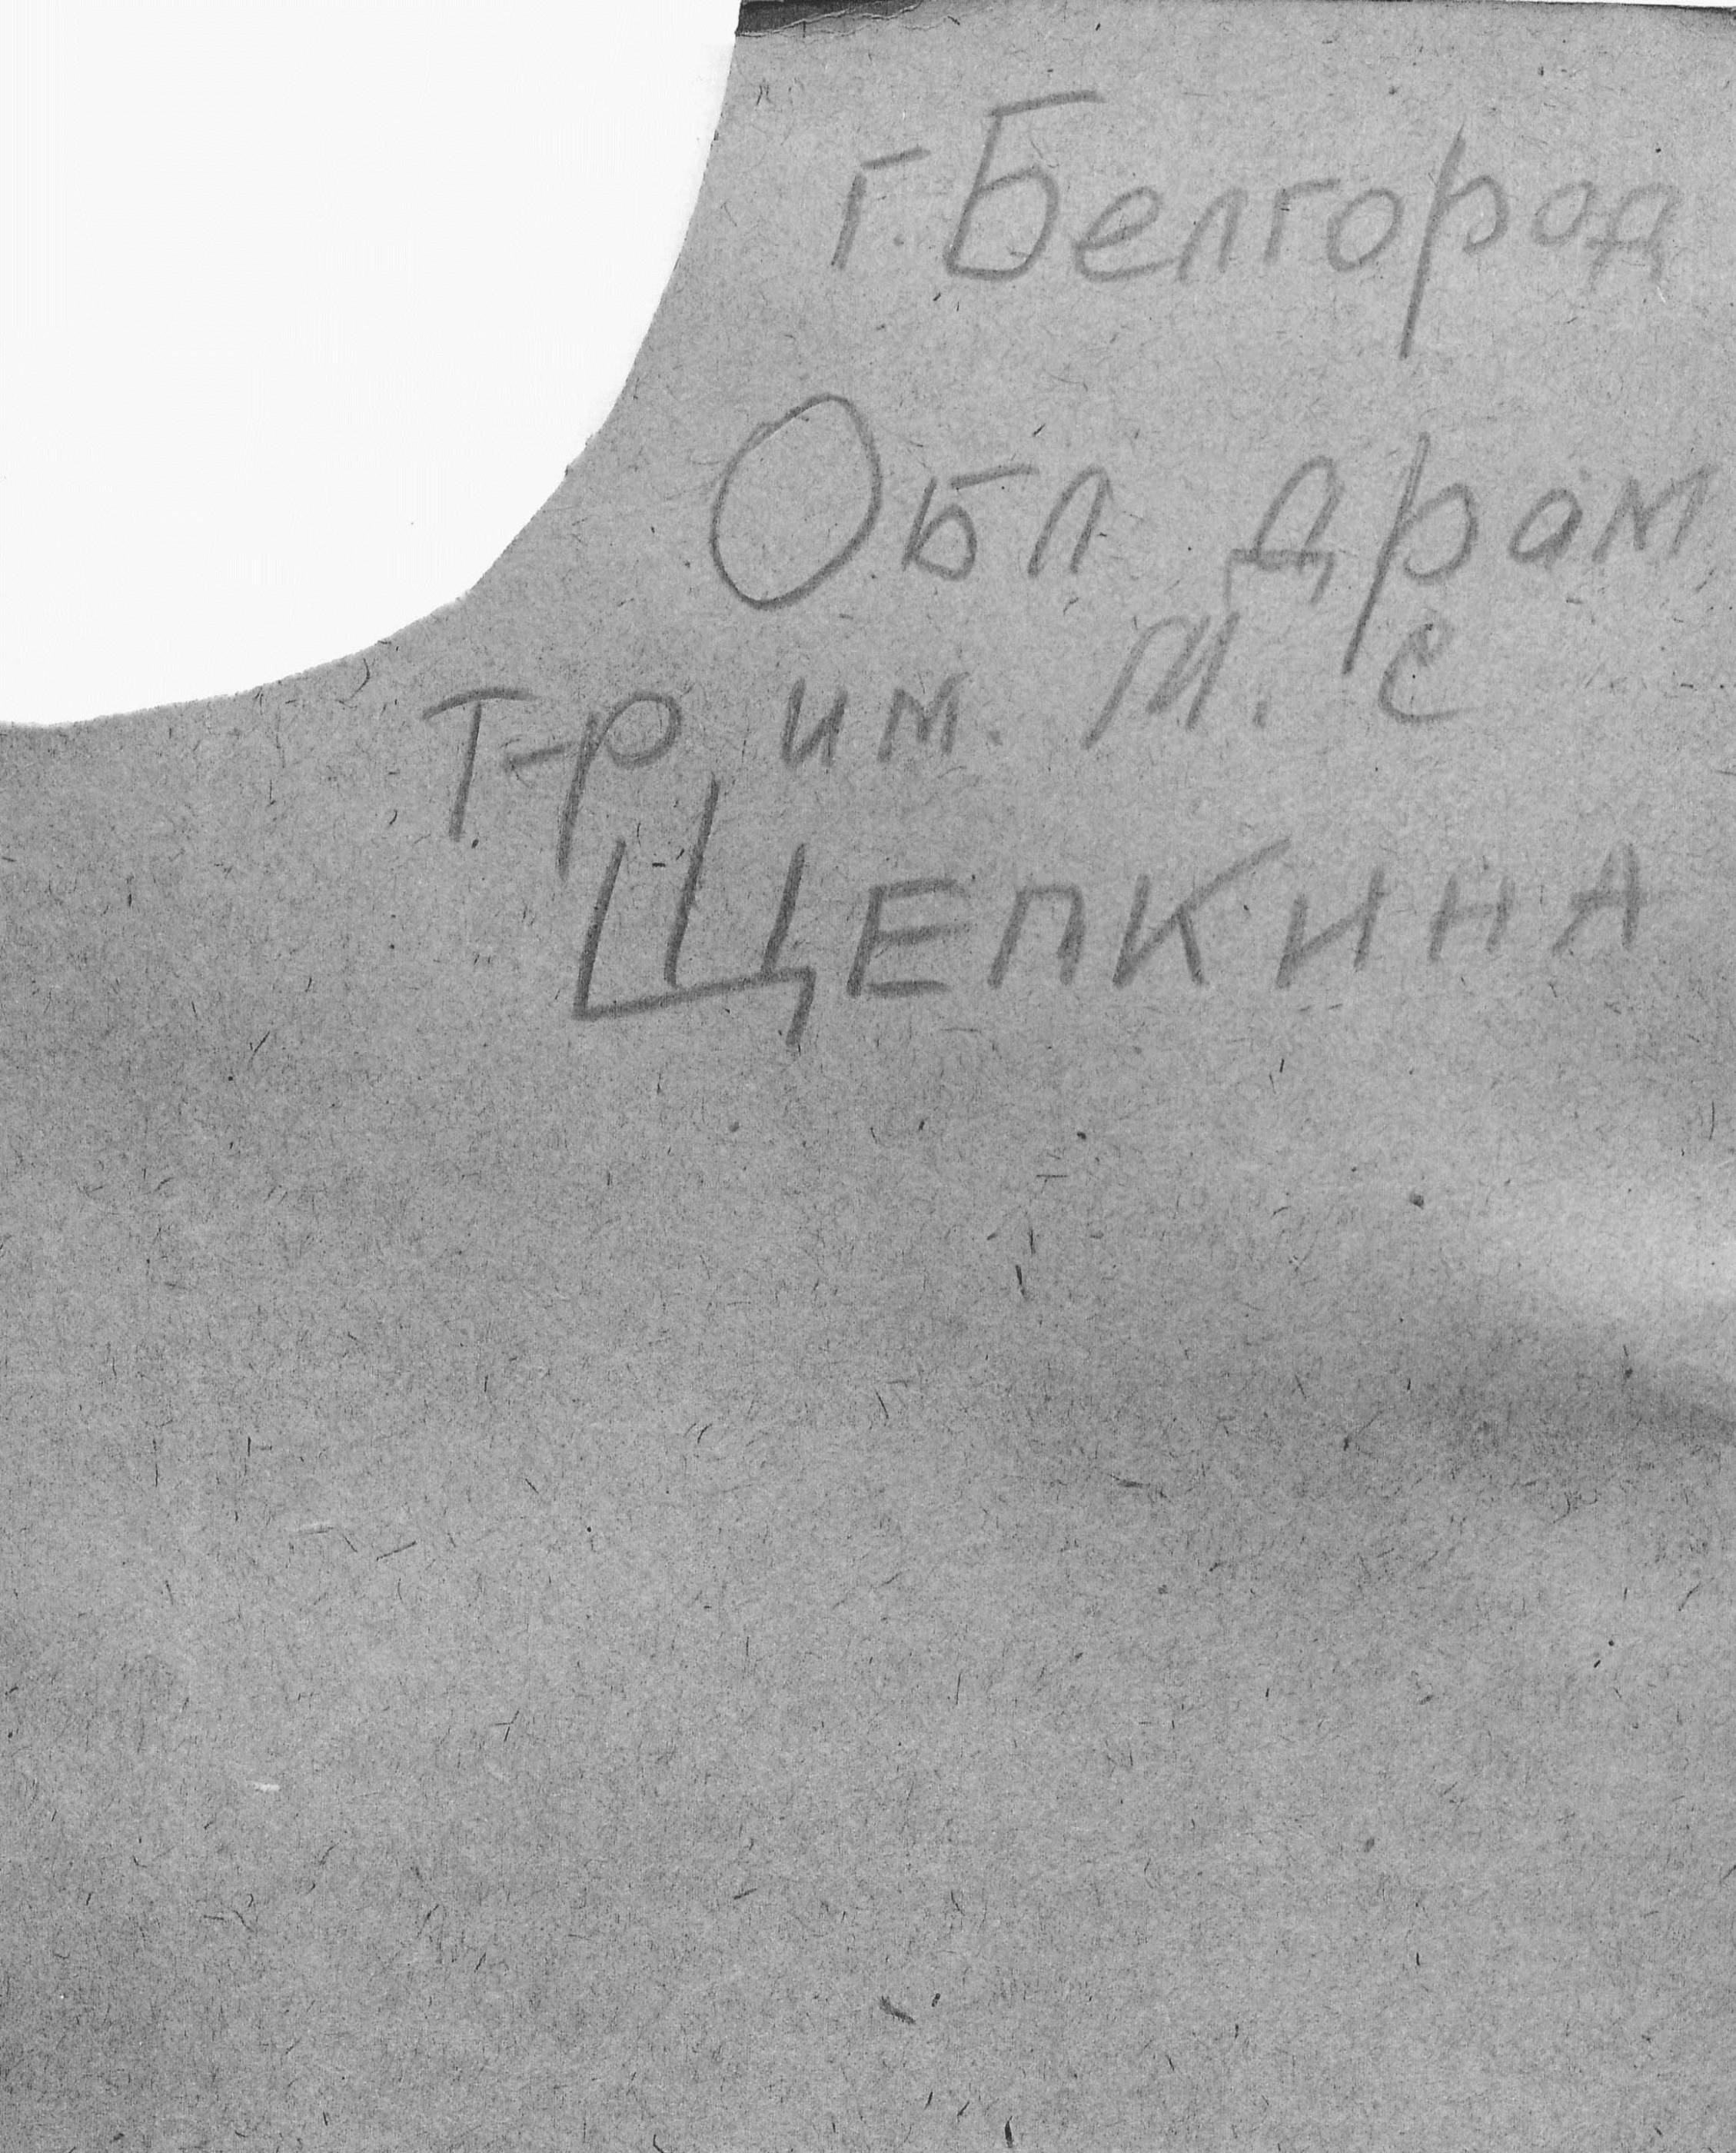 г. Белгород
Обл драм
т-р им. М. С
ЩЕПКИНА